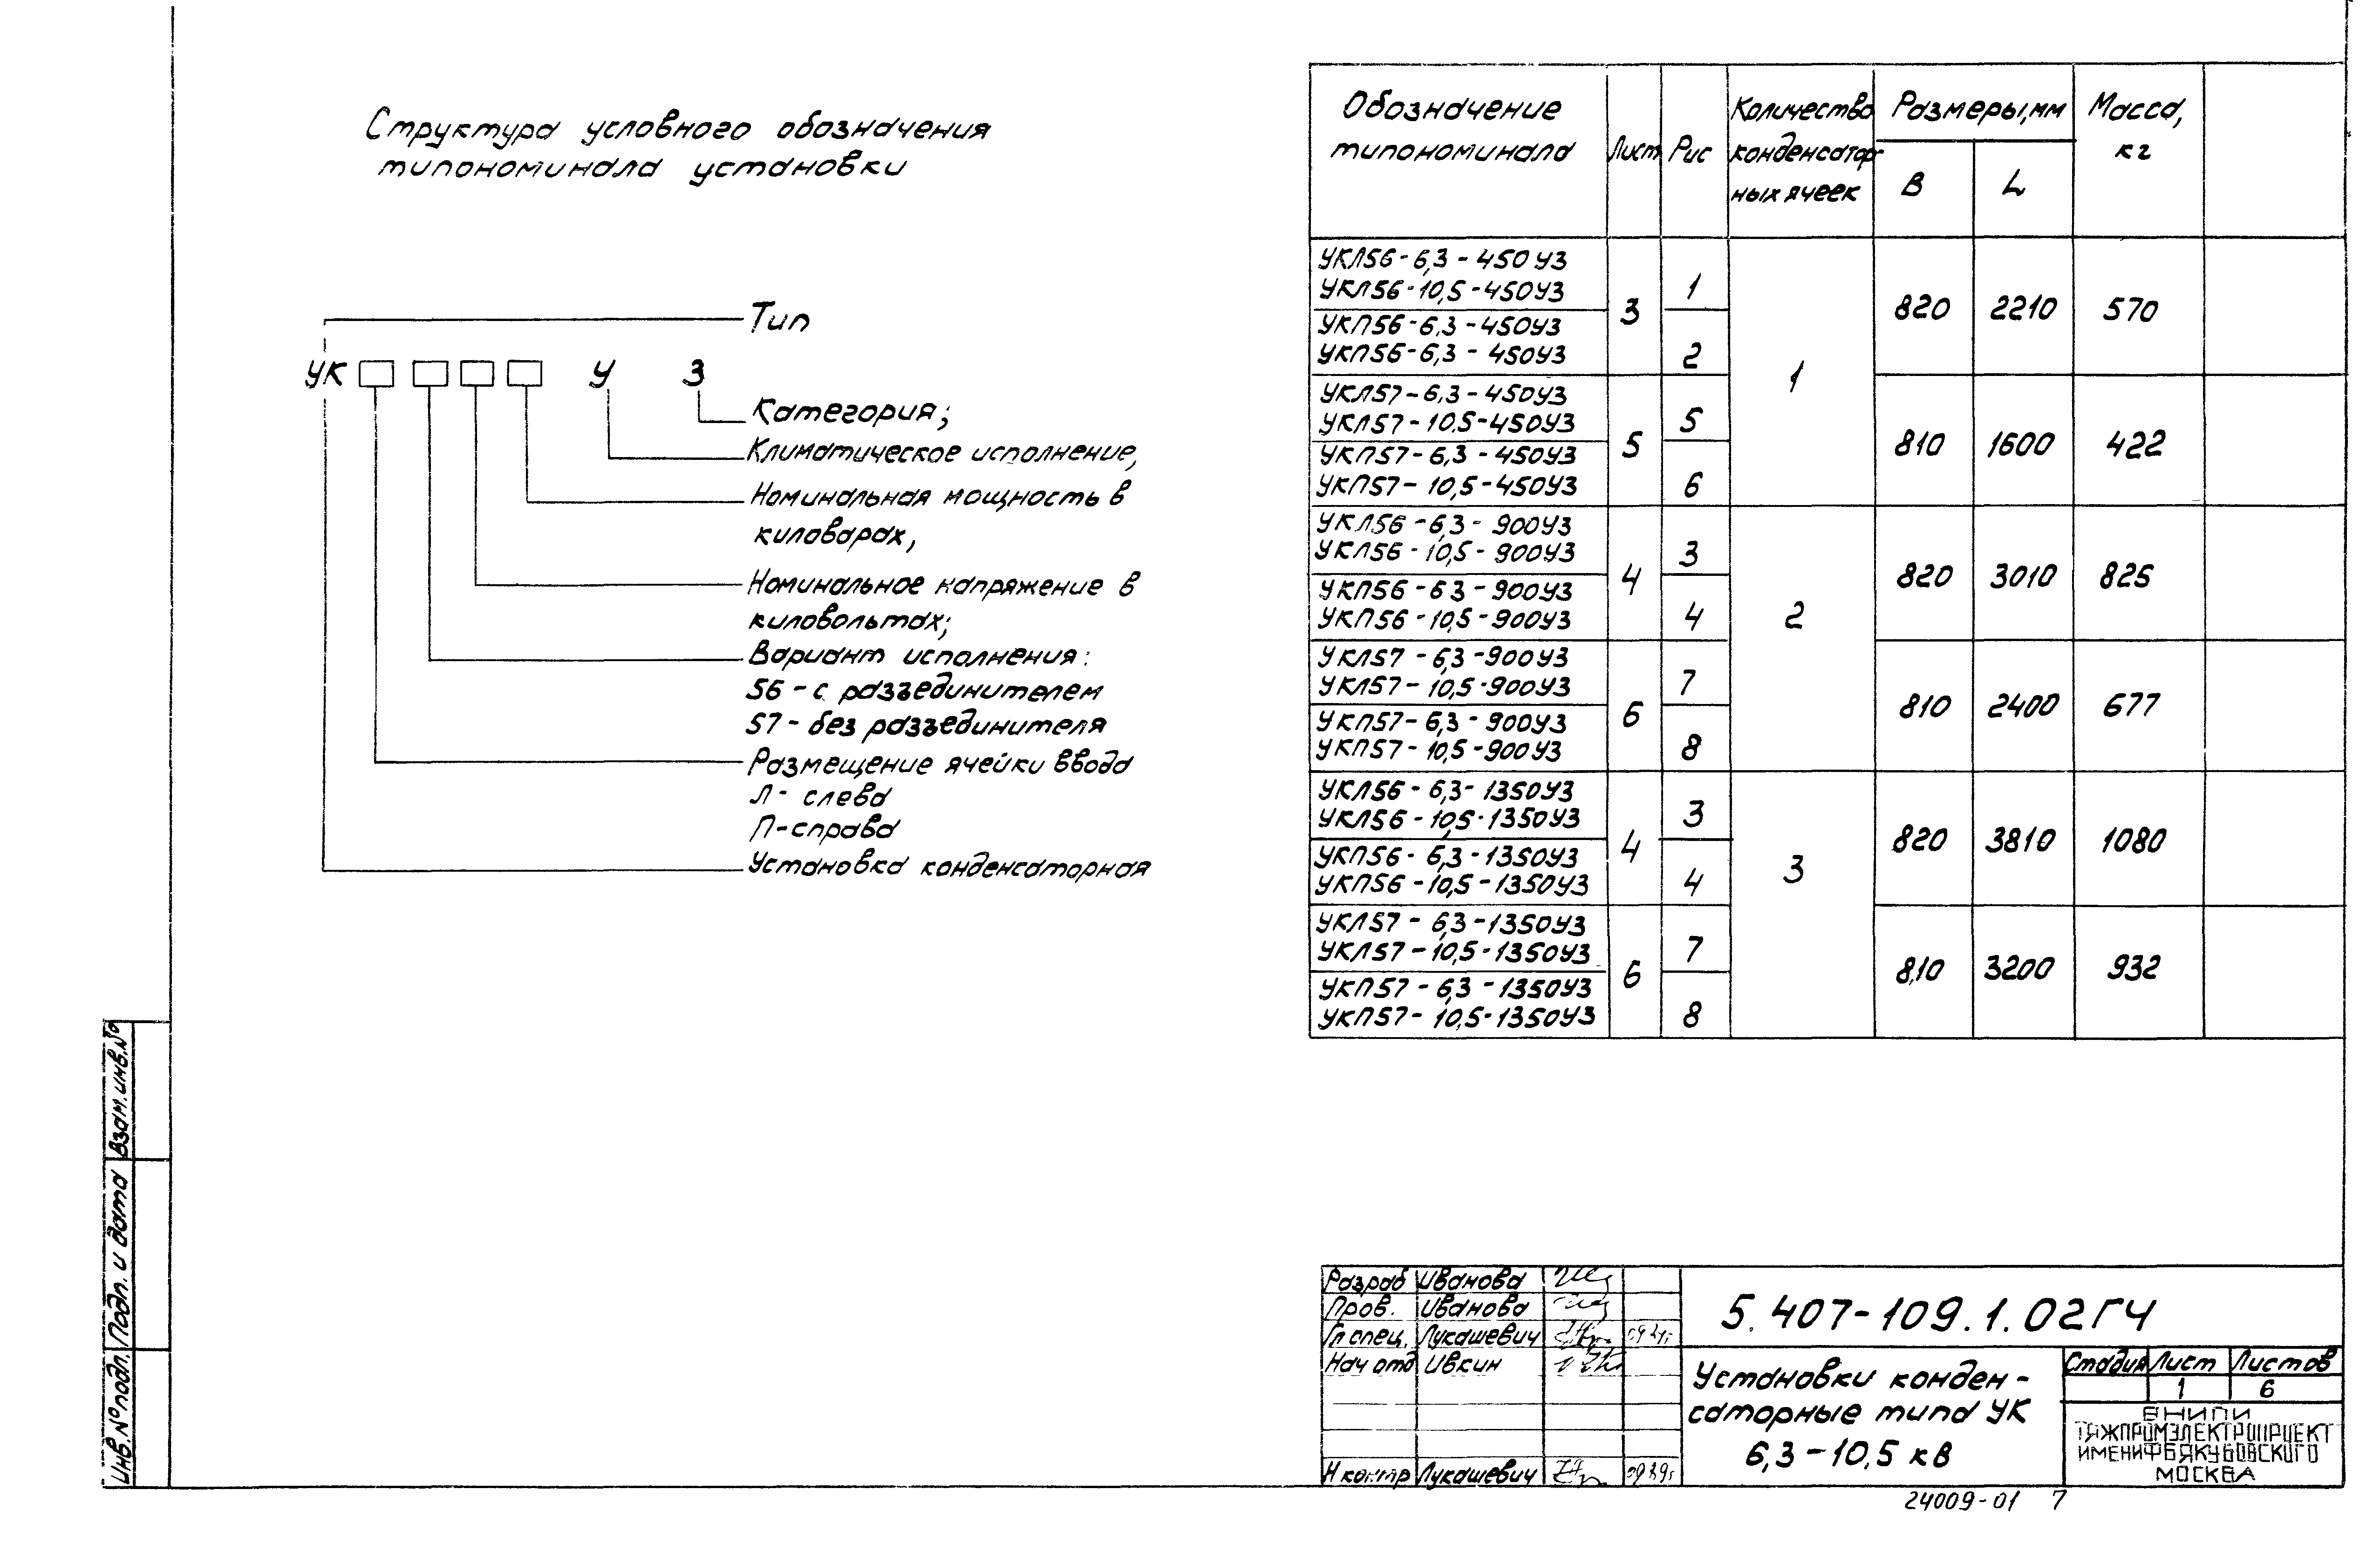 Структура условного обозначения
типономинала установки
Тип
УК У 3
Категория;
Климатическое исполнение,
Номинальная мощность в
киловарах,
Номинальное напряжение в
киловольтах;
Вариант исполнения:
56 - с разъединителем
57 - без разъединителя
Размещение ячейки ввода
Л - слева
П - справа
Установка конденсаторная
Обозначение типономинала Лист Рис Количество конденсатор- ных ячеек Размеры, мм В L Масса, кг
УКЛ56 - 6,3 - 450 У3
УКЛ56 - 10,5 - 450У3
1
УКП56 - 6,3 - 450У3
УКП56 - 6,3 - 450У3
2
3 1 820 2210 570
УКЛ57 - 6,3 - 450У3
УКЛ57 - 10.5 - 450У3
5
УКП57 - 6,3 - 450У3
УКП57 - 10,5 - 450У3
6
5 810 1600 422
УКЛ56 - 6,3 - 900У3
УКЛ56 - 10,5 - 900У3
3
УКП56 - 6 3 - 900У3
УКП56 - 10,5 - 900У3
4
4 2 820 3010 825
УКЛ57 - 6,3 - 900У3
УКЛ57 - 10,5 - 900У3
7
УКП57 - 6,3 - 900У3
УКП57 - 10,5 - 900У3
8
6 810 2400 677
УКЛ56 - 6,3 - 1350У3
УКЛ56 - 10,5 - 1350У3
3
УКП56 - 6,3 - 1350У3
УКП56 - 10,5 - 1350У3
4
4 3 820 3810 1080
УКЛ57 - 6,3 - 1350У3
УКЛ57 - 10,5 - 1350У3
7
УКП57 - 6,3 - 1350У3
УКП57 - 10,5 - 1350У3
8
6 810 3200 932
Взам. инв. №
Подп. и дата
Инв. № подл.
Разраб Иванова
Пров. Иванова
Гл спец. Лукашевич
Нач отд Ивкин
Н контр Лукашевич
5.407-109.1.02ГЧ
Установки конден-
саторные типа УК
6,3 - 10,5 кВ
Стадия Лист Листов
1 6
ВНИПИ
ТЯЖПРОМЭЛЕКТРОПРОЕКТ
ИМЕНИ Ф Б ЯКУБОВСКОГО
МОСКВА
24009-01 7